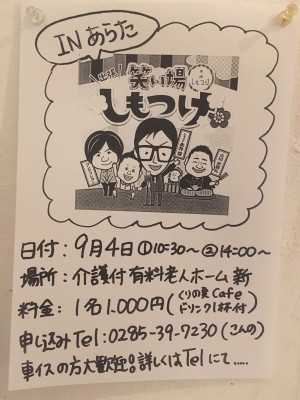 IN あらた
出張!
笑い場
しもつけ
日付：9月4日①10:30〜②14:00〜
場所：介護付有料老人ホーム新
料金：1名1,000円（くりの実Cafe
ドリンク1杯付）
申し込みTel：0285-39-7230（こんの）
車イスの方大歓迎!!詳しくはTelにて.....